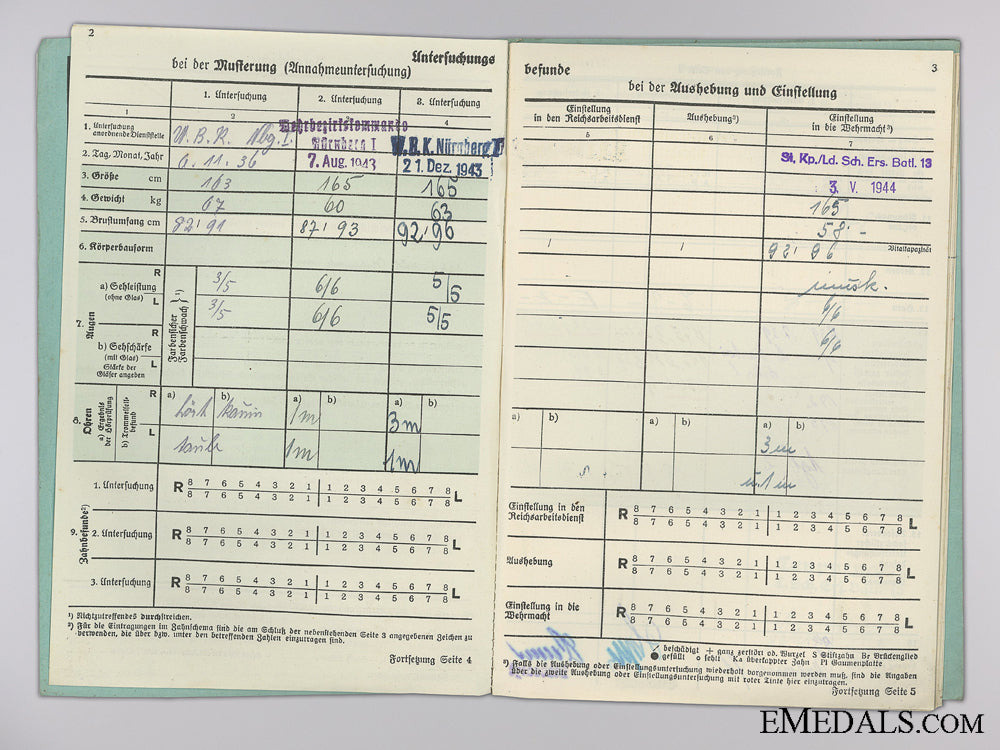 2
Untersuchungs
bei der Musterung (Annahmeuntersuchung)
1. Untersuchung 2. Untersuchung 3. Untersuchung
1 2 4
1. Untersuchung anordnende Dienststelle W. B. K. Nbg. I. Wehrbezirkskommando Nürnberg I W.B.K. Nürnberg I
2. Tag, Monat, Jahr 6. 11. 36 7. Aug. 1943 21. Dez. 1943
3. Größe cm 163 165 165
4. Gewicht kg 67 60 63
5. Brustumfang cm 82/91 87/93 92/96
6. Körperbauform
7. Augen
a) Sehleistung (ohne Glas)
R 3/5 6/6 5/5
L 3/5 6/6 5/5
b) Sehschärfe (mit Glas) Stärke der Gläser angeben
R
L
Farbensicher
Farbenschwach }¹)
8. Ohren
a) Ergebnis der Hörprüfung
b) Trommelfellbefund
a) b) a) b) a) b)
R 1m 3m
L taub 1m 1m
9. Zahnbefunde²)
1. Untersuchung R 8 7 6 5 4 3 2 1 | 1 2 3 4 5 6 7 8 L
8 7 6 5 4 3 2 1 | 1 2 3 4 5 6 7 8
2. Untersuchung R 8 7 6 5 4 3 2 1 | 1 2 3 4 5 6 7 8 L
8 7 6 5 4 3 2 1 | 1 2 3 4 5 6 7 8
3. Untersuchung R 8 7 6 5 4 3 2 1 | 1 2 3 4 5 6 7 8 L
8 7 6 5 4 3 2 1 | 1 2 3 4 5 6 7 8
¹) Nichtzutreffendes durchstreichen.
²) Für die Eintragungen im Zahnschema sind die am Schluß der nebenstehenden Seite 3 angegebenen Zeichen zu
verwenden, die über bzw. unter den betreffenden Zahlen einzutragen sind.
Fortsetzung Seite 4
3
befunde
bei der Aushebung und Einstellung
Einstellung in den Reichsarbeitsdienst Aushebung³) Einstellung in die Wehrmacht³)
5 6 7
St. Kp./Ld. Sch. Ers. Batl. 13
3. V. 1944
165
58.-
Vitalkapazität
/ / 92/96
musk.
6/6
6/6
a) b) a) b) a) b)
3m
1m
Einstellung in den Reichsarbeitsdienst R 8 7 6 5 4 3 2 1 | 1 2 3 4 5 6 7 8 L
8 7 6 5 4 3 2 1 | 1 2 3 4 5 6 7 8
Aushebung R 8 7 6 5 4 3 2 1 | 1 2 3 4 5 6 7 8 L
8 7 6 5 4 3 2 1 | 1 2 3 4 5 6 7 8
Einstellung in die Wehrmacht R 8 7 6 5 4 3 2 1 | 1 2 3 4 5 6 7 8 L
8 7 6 5 4 3 2 1 | 1 2 3 4 5 6 7 8
beschädigt + ganz zerstört od. Wurzel S Stiftzahn Br Brückenglied
● gefüllt o fehlt Ka überkappter Zahn Pl Gaumenplatte
³) Falls die Aushebung oder Einstellungsuntersuchung wiederholt vorgenommen werden muß, sind die Angaben
über die zweite Aushebung oder Einstellungsuntersuchung mit roter Tinte hier einzutragen.
Fortsetzung Seite 5
EMEDALS.COM